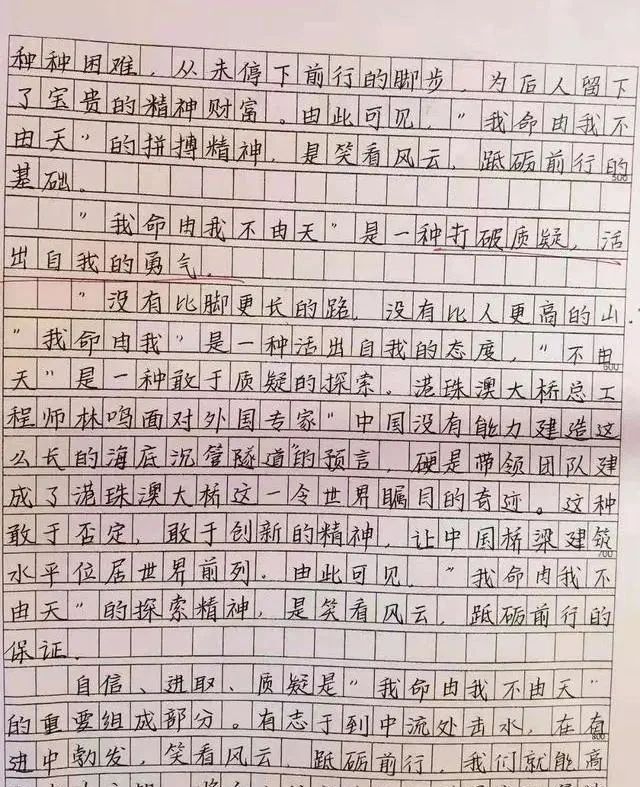 种种困难，从未停下前行的脚步，为后人留下
了宝贵的精神财富。由此可见，“我命由我不
由天”的拼搏精神，是笑看风云，砥砺前行的
基础。
500
“我命由我不由天”是一种打破质疑，活
出自我的勇气。
“没有比脚更长的路，没有比人更高的山。”
“我命由我”是一种活出自我的态度，“不由
600
天”是一种敢于质疑的探索。港珠澳大桥总工
程师林鸣面对外国专家“中国没有能力建造这
么长的海底沉管隧道”的预言，硬是带领团队建
成了港珠澳大桥这一令世界瞩目的奇迹。这种
敢于否定，敢于创新的精神，让中国桥梁建筑
700
水平位居世界前列。由此可见，“我命由我不
由天”的探索精神，是笑看风云，砥砺前行的
保证。
自信、进取、质疑是“我命由我不由天”
的重要组成部分。有志于到中流处击水，在奋
800
进中勃发，笑看风云，砥砺前行，我们就能高